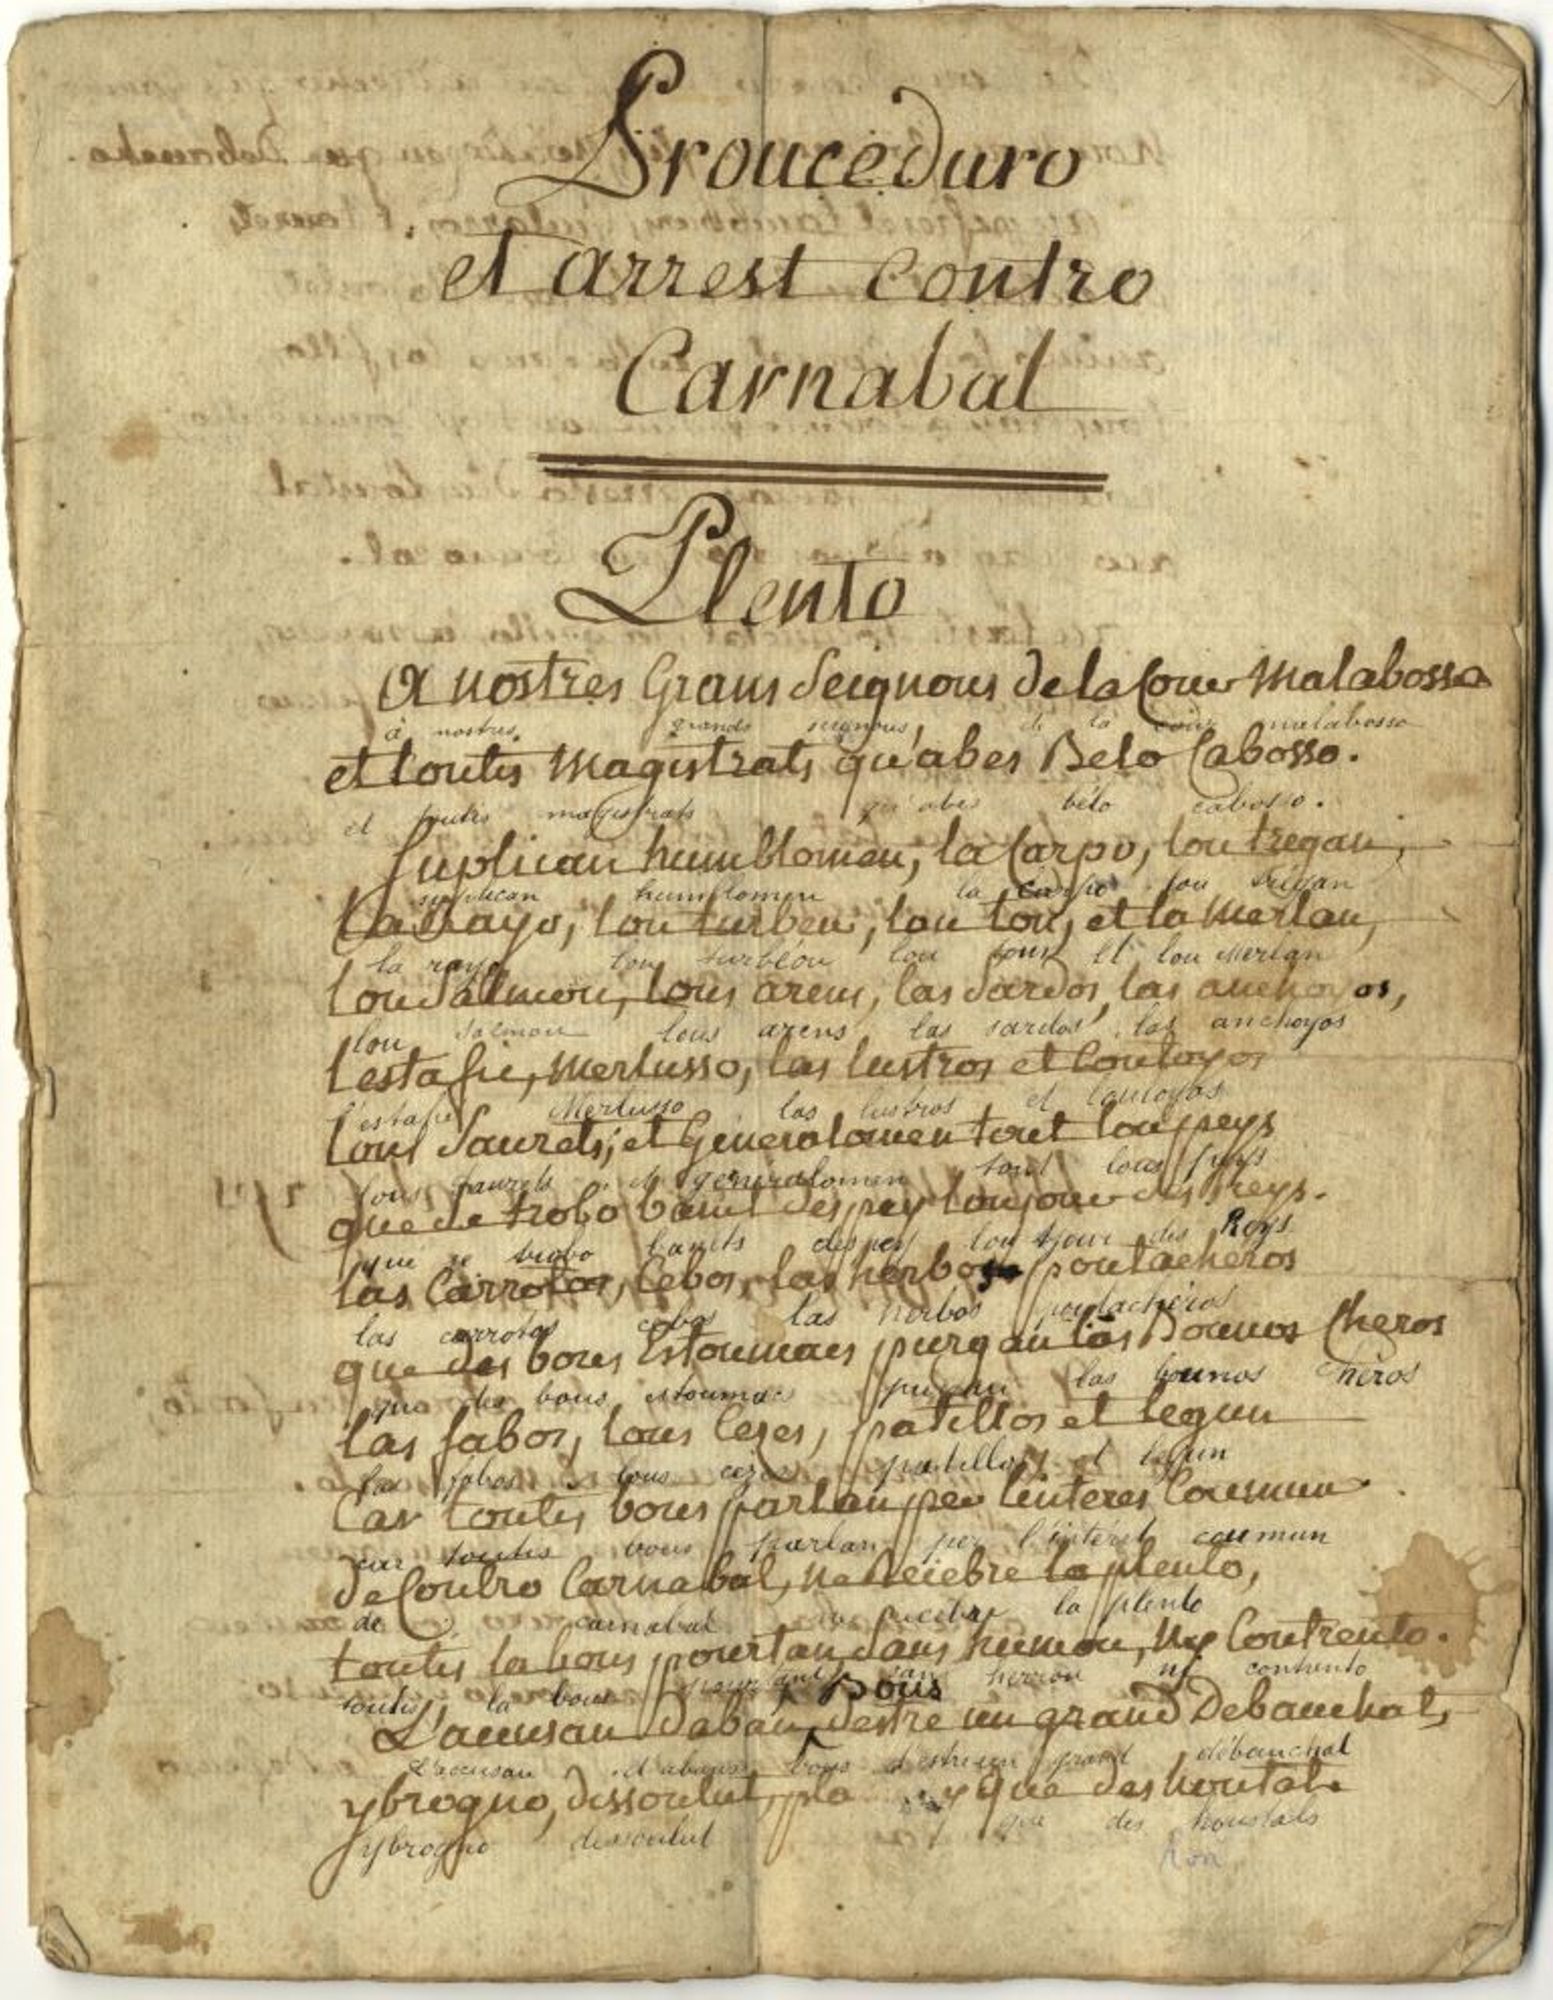 Prouceduro
et arrest contro
Carnabal
Plento
A nostres Grans Seignous de la Cour Malabosso
à nostres grands seignous, de la cour malabosso
et toutis Magistrats qu'abes Belo Cabosso.
et toutis magistrats qu'abes bélo cabosso.
Suplican humblomen, la Carpo, lou tregan,
supplican humblomen la carpo lou trégan
La Rayo, lou turbeu, lou ton, et lo Merlan,
la rayo lou turbéou lou toun et lou Merlan
lou Salmou, lous arens, las Sardos, las anchoyos,
lou salmou lous arens las sardos las anchoyos
lestafie, Merlusso, las lustros et loutoyos
l'estafié Merlusso las lustros et loutoyos
lous Saurets, et Generalomen tout lou peys
lous saurets et généralomen tout lous peys
que se trobo banit despey lou jour des Reys.
que se trobo banits despey lou jour des Reys
las Carrotos, Cebos, las herbos poutacheros
las carrotos cebos las herbos poutachéros
que des bous Estoumacs purgan las Bounos Cheros
que des bous estoumacs purgan las bounos chéros
las fabos, lous Ceses, patillos et legun
las fabos lous cezes patillos et légun
Car toutis bous parlan per linteres Coumun
car toutis bous parlan per l'intérêt coumun
de Contro Carnabal, ne Recebre la plento,
de C. carnabal ne recebre la plento
toutis la bous pourtan sans humou, ny Contrento.
toutis la bous pourtant san ny contrento
Bous
L'acusan Daban destre un grand Debauchat,
L'acusan d'abans bous d'estre un grand débauchat
ybrogno, dissoulut, y que des houstals
ybrogno dissoulut que des houstals